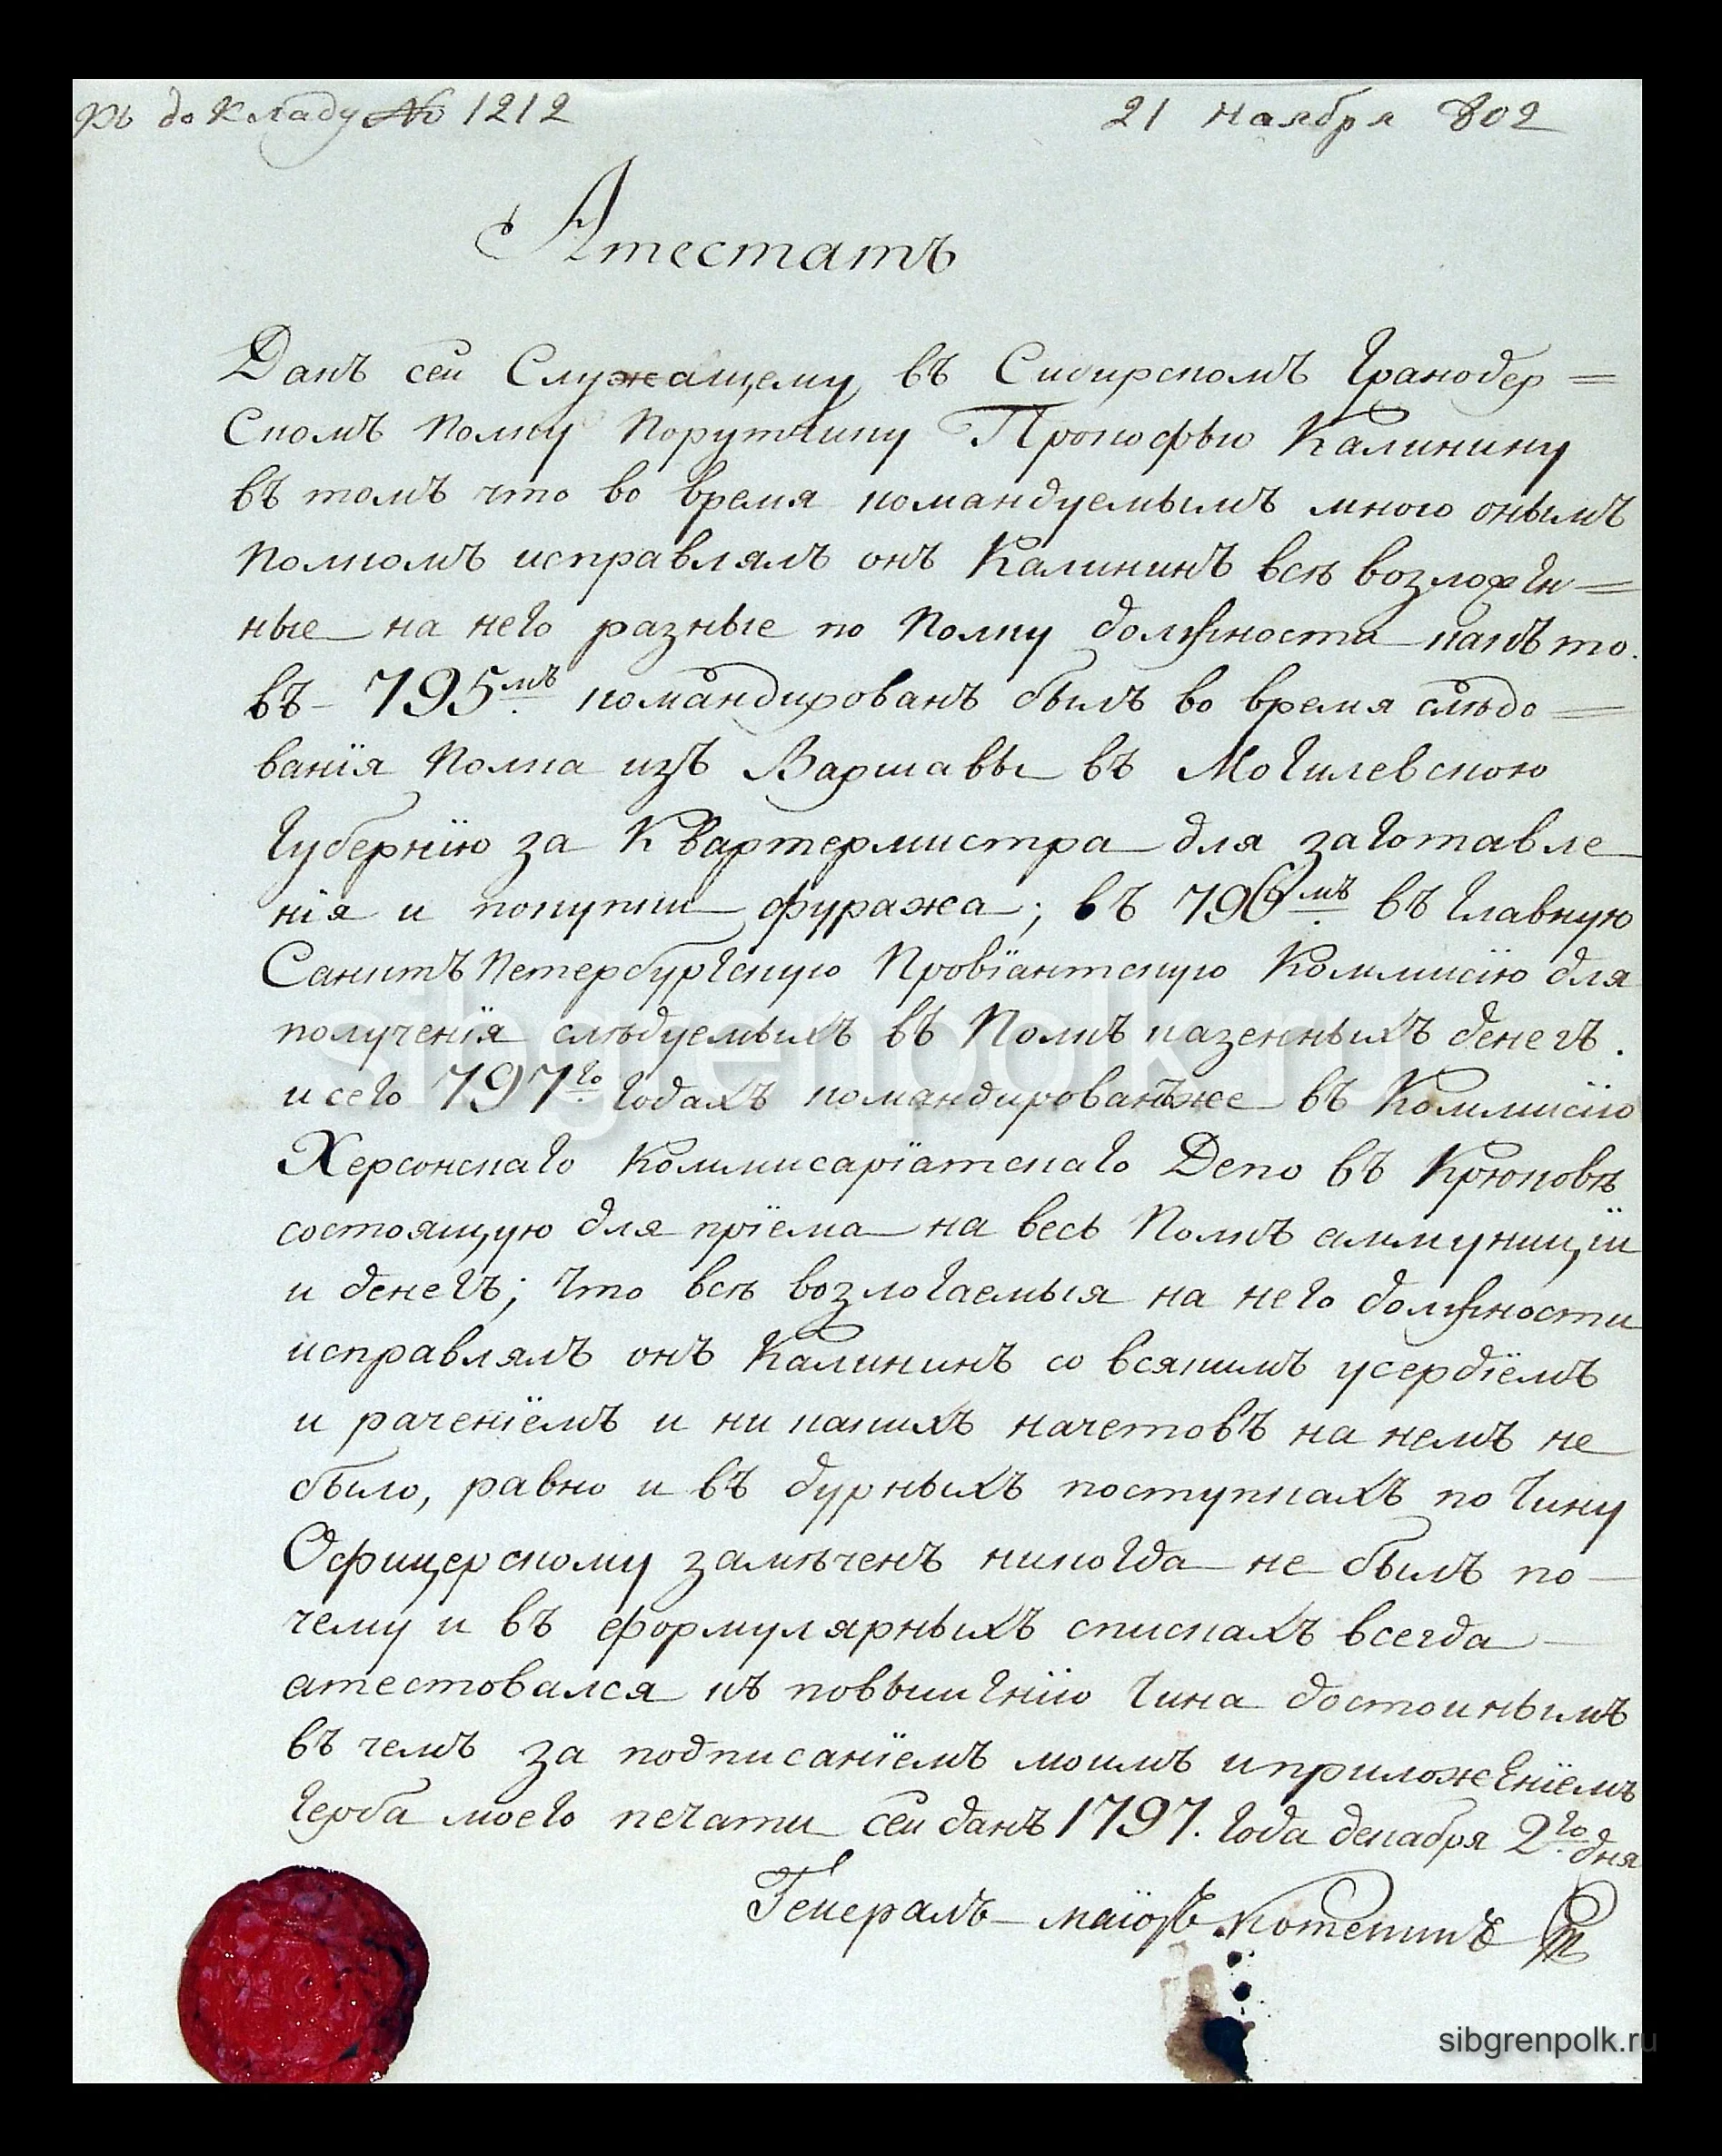 Къ докладу № 1212
21 Ноября 802
Атестатъ
Данъ сей Служащему въ Сибирскомъ Гранодер=
Скомъ Полку Порутчику Прокофью Калинину
въ томъ что во время командуемымъ мною онымъ
Полкомъ исправлялъ онъ Калининъ всѣ возложен=
ные на него разные по Полку должности какъ то.
въ- 795мъ командированъ былъ во время слѣдо=
ванїя Полка изъ Варшавы въ Могилевскою
Губернїю за Квартермистра для заготавле
нїя и покупки фуража; въ 796мъ въ Главную
Санктъ Петербургскую Провїантскую Коммисїю для
полученїя слѣдуемыхъ въ Полкъ казенныхъ денегъ.
и сего 797го Годахъ командированъ же въ Коммисїю
Херсонскаго Коммисарїатскаго Депо въ Крюковѣ
состоящую для прїема на весь Полкъ аммуницїи
и денегъ; что всѣ возлогаемыя на него должности
исправлялъ онъ Калининъ со всякимъ усердїемъ
и раченїемъ и ни какихъ начетовъ на немъ не
было, равно и въ дурныхъ поступкахъ по чину
Офицерскому замѣченъ никогда не былъ по-
чему и въ формулярныхъ спискахъ всегда
атестовался къ повышенїю чина достоинымъ
въ чемъ за подписанїемъ моимъ и приложенїемъ
герба моего печати сей данъ 1797. Года декабря 2го дня
Генералъ-маїоръ
sibgrenpolk.ru
sibgrenpolk.ru